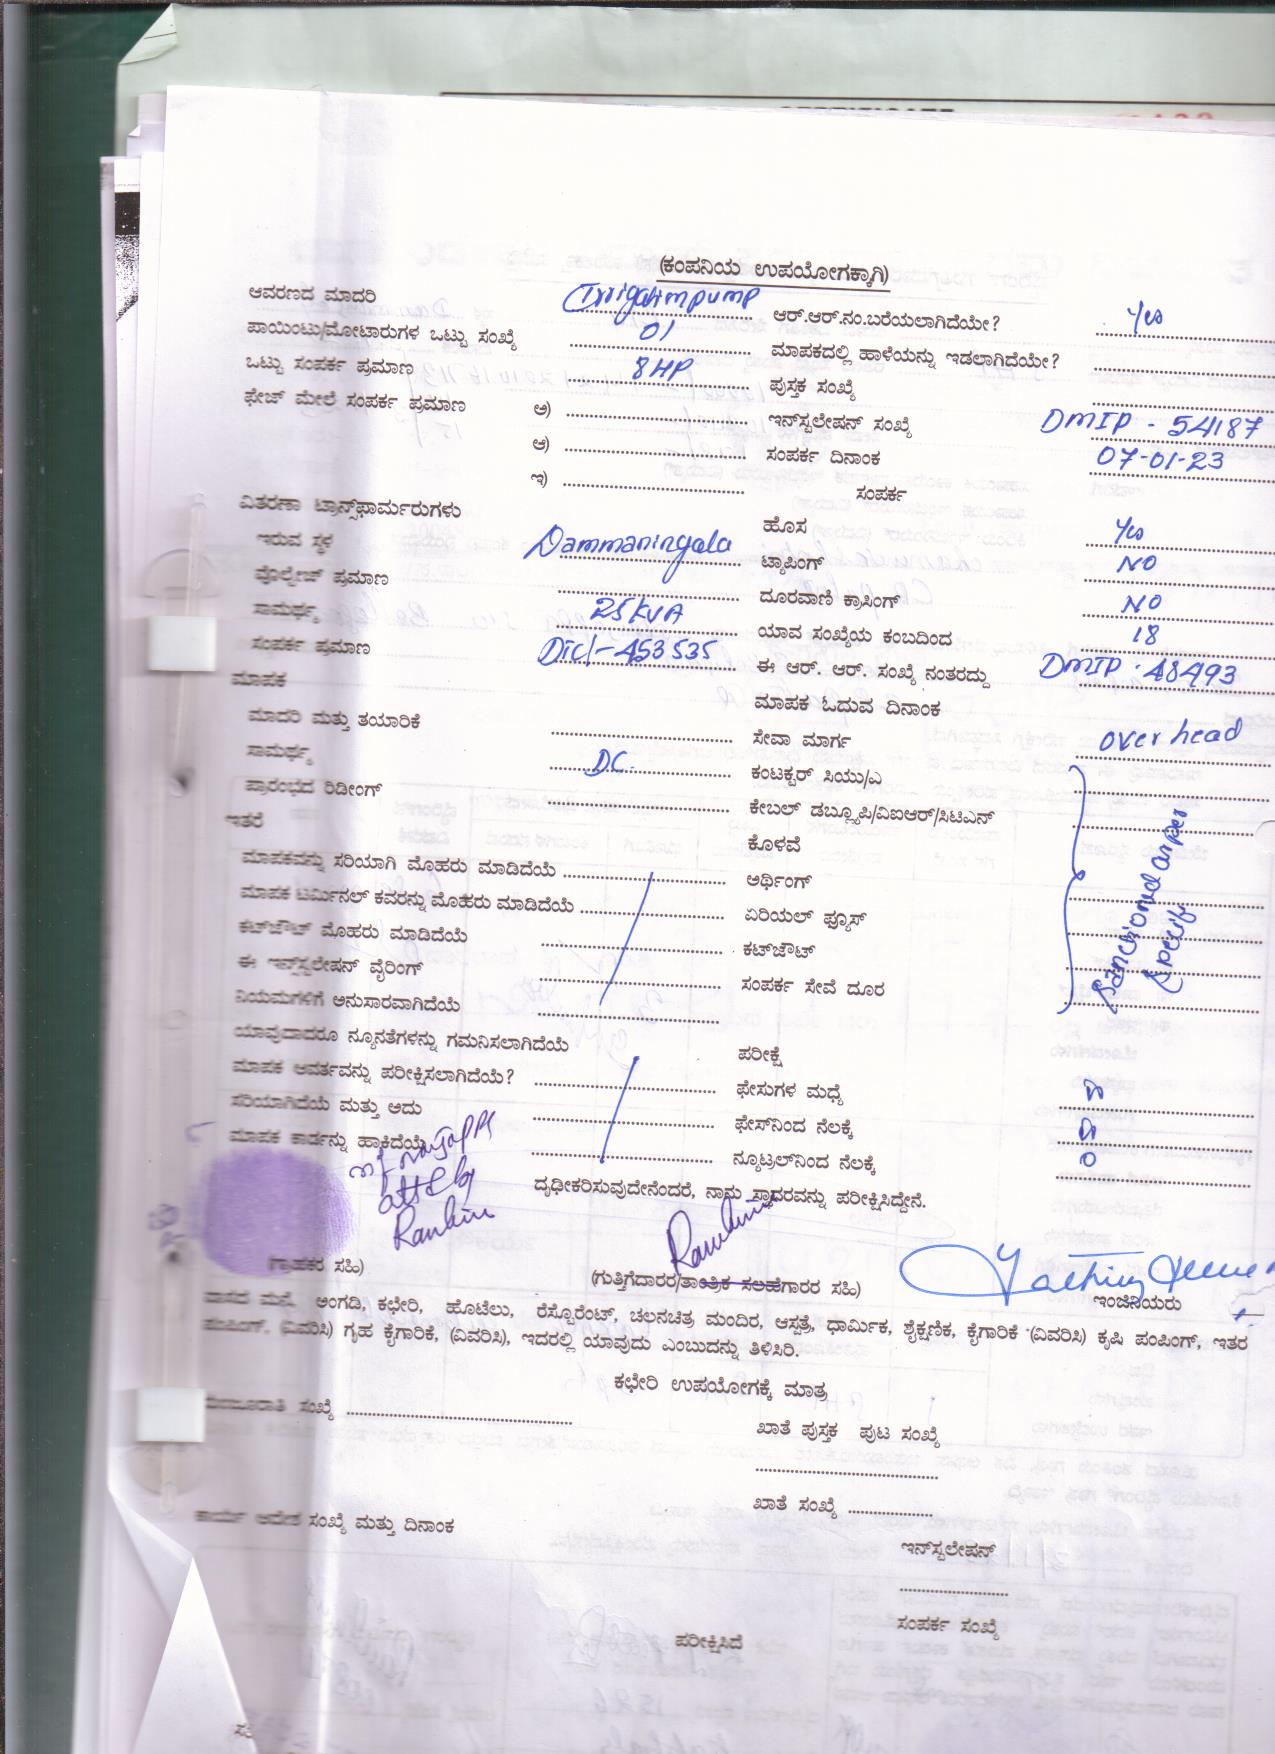 (ಕಂಪನಿಯ ಉಪಯೋಗಕ್ಕಾಗಿ)
ಆವರಣದ ಮಾದರಿ Irrigation pump ಆರ್.ಆರ್.ನಂ.ಬರೆಯಲಾಗಿದೆಯೇ? Yes
ಪಾಯಿಂಟು/ಮೋಟಾರುಗಳ ಒಟ್ಟು ಸಂಖ್ಯೆ 01 ಮಾಪಕದಲ್ಲಿ ಹಾಳೆಯನ್ನು ಇಡಲಾಗಿದೆಯೇ?
ಒಟ್ಟು ಸಂಪರ್ಕ ಪ್ರಮಾಣ 8HP ಪುಸ್ತಕ ಸಂಖ್ಯೆ
ಫೇಜ್ ಮೇಲೆ ಸಂಪರ್ಕ ಪ್ರಮಾಣ ಅ) ಇನ್‌ಸ್ಟಲೇಷನ್ ಸಂಖ್ಯೆ DMIP - 54187
ಆ) ಸಂಪರ್ಕ ದಿನಾಂಕ 07-01-23
ಇ) ಸಂಪರ್ಕ
ವಿತರಣಾ ಟ್ರಾನ್ಸ್‌ಫಾರ್ಮರುಗಳು
ಇರುವ ಸ್ಥಳ Dammaningala ಹೊಸ Yes
ವೊಲ್ಟೇಜ್ ಪ್ರಮಾಣ ಟ್ಯಾಪಿಂಗ್ NO
ಸಾಮರ್ಥ್ಯ 25KVA ದೂರವಾಣಿ ಕ್ರಾಸಿಂಗ್ NO
ಸಂಪರ್ಕ ಪ್ರಮಾಣ DTC/-453535 ಯಾವ ಸಂಖ್ಯೆಯ ಕಂಬದಿಂದ 18
ಮಾಪಕ ಈ ಆರ್. ಆರ್. ಸಂಖ್ಯೆ ನಂತರದ್ದು DMIP - 48493
ಮಾಪಕ ಓದುವ ದಿನಾಂಕ
ಮಾದರಿ ಮತ್ತು ತಯಾರಿಕೆ ಸೇವಾ ಮಾರ್ಗ over head
ಸಾಮರ್ಥ್ಯ DC. ಕಂಟಕ್ಟರ್ ಸಿಯು/ಎ
ಪ್ರಾರಂಭದ ರಿಡೀಂಗ್ ಕೇಬಲ್ ಡಬ್ಲ್ಯೂಪಿ/ವಿಐಆರ್/ಸಿಟಿಎನ್
ಇತರೆ ಕೊಳವೆ
ಮಾಪಕವನ್ನು ಸರಿಯಾಗಿ ಮೊಹರು ಮಾಡಿದೆಯೆ ಅರ್ಥಿಂಗ್
ಮಾಪಕ ಟರ್ಮಿನಲ್ ಕವರನ್ನು ಮೊಹರು ಮಾಡಿದೆಯೆ ಏರಿಯಲ್ ಫ್ಯೂಸ್
ಕಟ್‌ಔಟ್ ಮೊಹರು ಮಾಡಿದೆಯೆ ಕಟ್‌ಔಟ್
ಈ ಇನ್‌ಸ್ಟಲೇಷನ್ ವೈರಿಂಗ್ ಸಂಪರ್ಕ ಸೇವೆ ದೂರ
Sanctioned as per
ನಿಯಮಗಳಿಗೆ ಅನುಸಾರವಾಗಿದೆಯೆ
ಯಾವುದಾದರೂ ನ್ಯೂನತೆಗಳನ್ನು ಗಮನಿಸಲಾಗಿದೆಯೆ ಪರೀಕ್ಷೆ
ಮಾಪಕ ಆವರ್ತವನ್ನು ಪರೀಕ್ಷಿಸಲಾಗಿದೆಯೆ? ಫೇಸುಗಳ ಮಧ್ಯೆ
ಸರಿಯಾಗಿದೆಯೆ ಮತ್ತು ಅದು ಫೇಸ್‌ನಿಂದ ನೆಲಕ್ಕೆ
ಮಾಪಕ ಕಾರ್ಡನ್ನು ಹಾಕಿದೆಯೆ ನ್ಯೂಟ್ರಲ್‌ನಿಂದ ನೆಲಕ್ಕೆ
ದೃಢೀಕರಿಸುವುದೇನೆಂದರೆ, ನಾನು ಸ್ತಾವರವನ್ನು ಪರೀಕ್ಷಿಸಿದ್ದೇನೆ.
(ಗ್ರಾಹಕರ ಸಹಿ) (ಗುತ್ತಿಗೆದಾರರ/ತಾಂತ್ರಿಕ ಸಲಹೆಗಾರರ ಸಹಿ) ಇಂಜಿನಿಯರು
ವಾಸದ ಮನೆ, ಅಂಗಡಿ, ಕಛೇರಿ, ಹೊಟೆಲು, ರೆಸ್ಟೊರೆಂಟ್, ಚಲನಚಿತ್ರ ಮಂದಿರ, ಆಸ್ಪತ್ರೆ, ಧಾರ್ಮಿಕ, ಶೈಕ್ಷಣಿಕ, ಕೈಗಾರಿಕೆ (ವಿವರಿಸಿ) ಕೃಷಿ ಪಂಪಿಂಗ್, ಇತರ
ಪಂಪಿಂಗ್, (ವಿವರಿಸಿ) ಗೃಹ ಕೈಗಾರಿಕೆ, (ವಿವರಿಸಿ), ಇದರಲ್ಲಿ ಯಾವುದು ಎಂಬುದನ್ನು ತಿಳಿಸಿರಿ.
ಕಛೇರಿ ಉಪಯೋಗಕ್ಕೆ ಮಾತ್ರ
ಮಂಜೂರಾತಿ ಸಂಖ್ಯೆ ಖಾತೆ ಪುಸ್ತಕ ಪುಟ ಸಂಖ್ಯೆ
ಖಾತೆ ಸಂಖ್ಯೆ
ಕಾರ್ಯ ಆದೇಶ ಸಂಖ್ಯೆ ಮತ್ತು ದಿನಾಂಕ
ಇನ್‌ಸ್ಟಲೇಷನ್
ಸಂಪರ್ಕ ಸಂಖ್ಯೆ
ಪರೀಕ್ಷಿಸಿದೆ